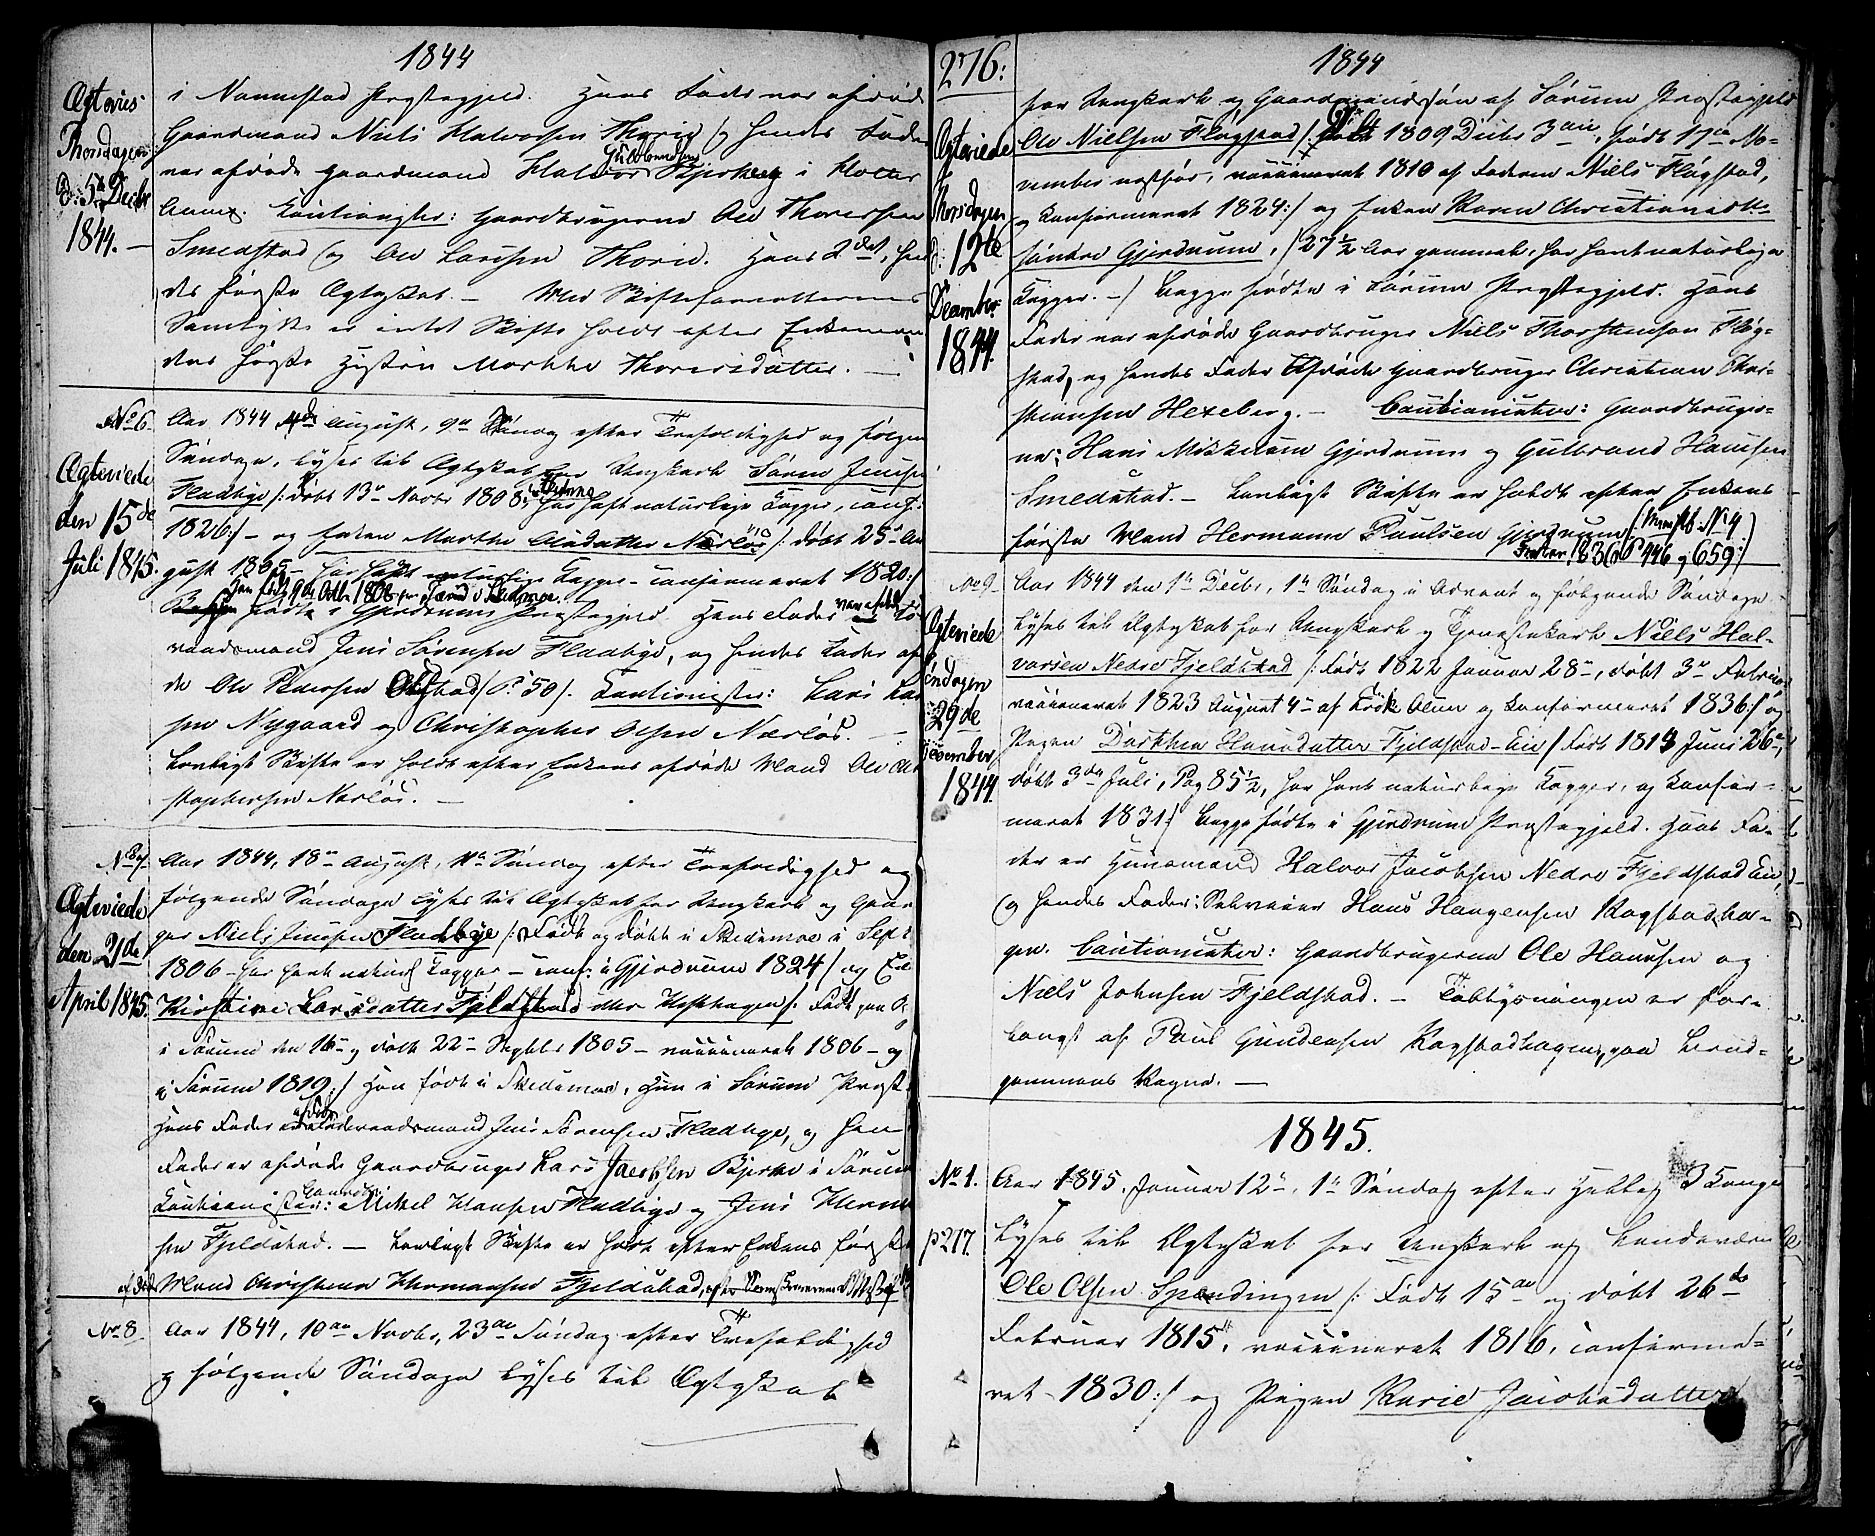 1844
Ægtevies
Thorsdagen
d: 5te Decbr
1844. —
i Nannestad Præstegjeld. Hans Fader var afdøde
Gaardmand Niels Halvorsen Thorie og hendes Fader
Gulbrandsen
var afdøde Gaardmand Halvor Bjerkeg i Holter
Cautionister: Gaardbrugerne Ole Thoresen
Smedstad og Ole Larsen Thorie. Hans 2det, hen
des første Ægteskab. — Med Skifteforvalterens
Samtykke er intet Skifte holdt efter Enkeman
dens første Hustru Marthe Thoresdatter. —
No 6.
Ægteviede
den 15de
Juli 1845.
Aar 1844 4de August, 9de Søndag efter Trefoldighed og følgen
Søndage, lyses til Ægteskab for Ungkarl Søren Jensen
Fladbye /: døbt 13de Novbr 1808, har haft naturlige Kopper, conf:
1826:/ — og Enken Marthe Olsdatter Nærløs /: døbt 25de Au
gust 1805 — har haft naturlige Kopper — confirmeret 1820:/
født i Gjerdrums Præstegjeld. Hans Fader var afdøde
Jens Sørensen Fladbye, og hendes Fader afdø
de Ole Pedersen /P. 50/. Cautionister: Lars Lar
sen Nygaard og Christopher Olsen Nærløs. —
Lovligt Skifte er holdt efter Enkens afdøde Mand Ole Chri
stophersen Nærløs. —
No 7.
Ægteviede
den 21de
April 1845.
Aar 1844, 18de August, 11te Søndag efter Trefoldighed og
følgende Søndage lyses til Ægteskab for Ungkarl og Gaar
Niels Jensen Fladbye /: Født og døbt i Skedsmoe i Sept
1806 — har havt naturl Kopper — conf: i Gjerdrum 1824/ og En
Kirstine Larsdatter Fjeldstad eller /: Født paa
i Sørum den 16de og døbt 22de Septbr 1805 — vaccineret 1806 — og
i Sørum 1819:/ Han født i Skedsmoe, Hun i Sørum Præst
afdøde
Hans Fader Jens Sørensen Fladbye, og hen
Fader er afdøde Gaardbruger Lars Jacobsen Bjerke i Sørum
Cautionister: Mikel Hansen Fladbye og Jens Herm
sen Fjeldstad. — Lovligt Skifte er holdt efter Enkens første
afdøde Mand Christian Hermansen Fjeldstad,
No 8.
Aar 1844, 10de Novbr, 23de Søndag efter Trefoldighed
og følgende Søndage lyses til Ægteskab
276:
1844
Ægteviede
Thorsdagen
d: 12te
December
1844.
for Ungkarl og Gaardmandssøn af Sørum Præstegjeld
Ole Nielsen Fløgstad /: Døbt 1809 Decbr 3die, født 17de No-
vember nestfør, vaccineret 1810 af Faderen Niels Fløgstad,
og confirmeret 1824:/ og Enken Karen Christiansdtr
søndre Gjerdrum, /: 27½ Aar gammel, har havt naturlige
Kopper. —/ Begge fødte i Sørum Præstegjeld. Hans
Fader var afdøde Gaardbruger Niels Thorstensen Fløg-
stad, og hendes Fader Afdøde Gaardbruger Christian Chri-
stiansen Hexeberg. — Cautionister: Gaardbruger-
ne: Hans Mikkelsen Gjerdrum og Gulbrand Hansen
Smedstad. — Lovligt Skifte er holdt efter Enkens
første Mand Hermann Paulsen Gjerdrum
1836 P 446 og 659:/
No 9.
Ægteviede
Søndagen
29de
December
1844.
Aar 1844 den 1te Decbr, 1te Søndag i Advent og følgende Søndage
lyses til Ægteskab for Ungkarl og Tjenestekarl Niels Hal-
vorsen Nedre Fjeldstad /: Født 1822 Januar 28de, døbt 3de Februar
vaccineret 1823 August 4de af Kløk Olsen og confirmeret 1836:/ og
Pigen Dorthea Hansdatter Fjeldstad-Eie /: Født 1814 Juni 26de,
døbt 3die Juli, Pag 85½, har havt naturlige Kopper, og confir-
meret 1831:/ Begge fødte i Gjerdrums Præstegjeld. Hans Fa-
der er Huusmand Halvor Jacobsen Nedre Fjeldstad Eie,
og hendes Fader: Selveier Hans Haagensen Ragstadha-
gen. Cautionister: Gaardbrugerne Ole Hansen og
Niels Johnsen Fjeldstad. — Tillysningen er for-
langt af Poul Gundersen Ragstadhagen, paa Brud-
gommens Vegne. —
1845.
No 1.
p 277.
Aar 1845, Januar 12te, 1te Søndag efter Hellig 3 Konge
lyses til Ægteskab for Ungkarl og Landeværn
Ole Olsen Spændingen /: Født 15de og døbt 26de
Februar 1815, vaccineret 1816, confirme-
ret 1830:/ og Pigen Karie Jacobsdatter